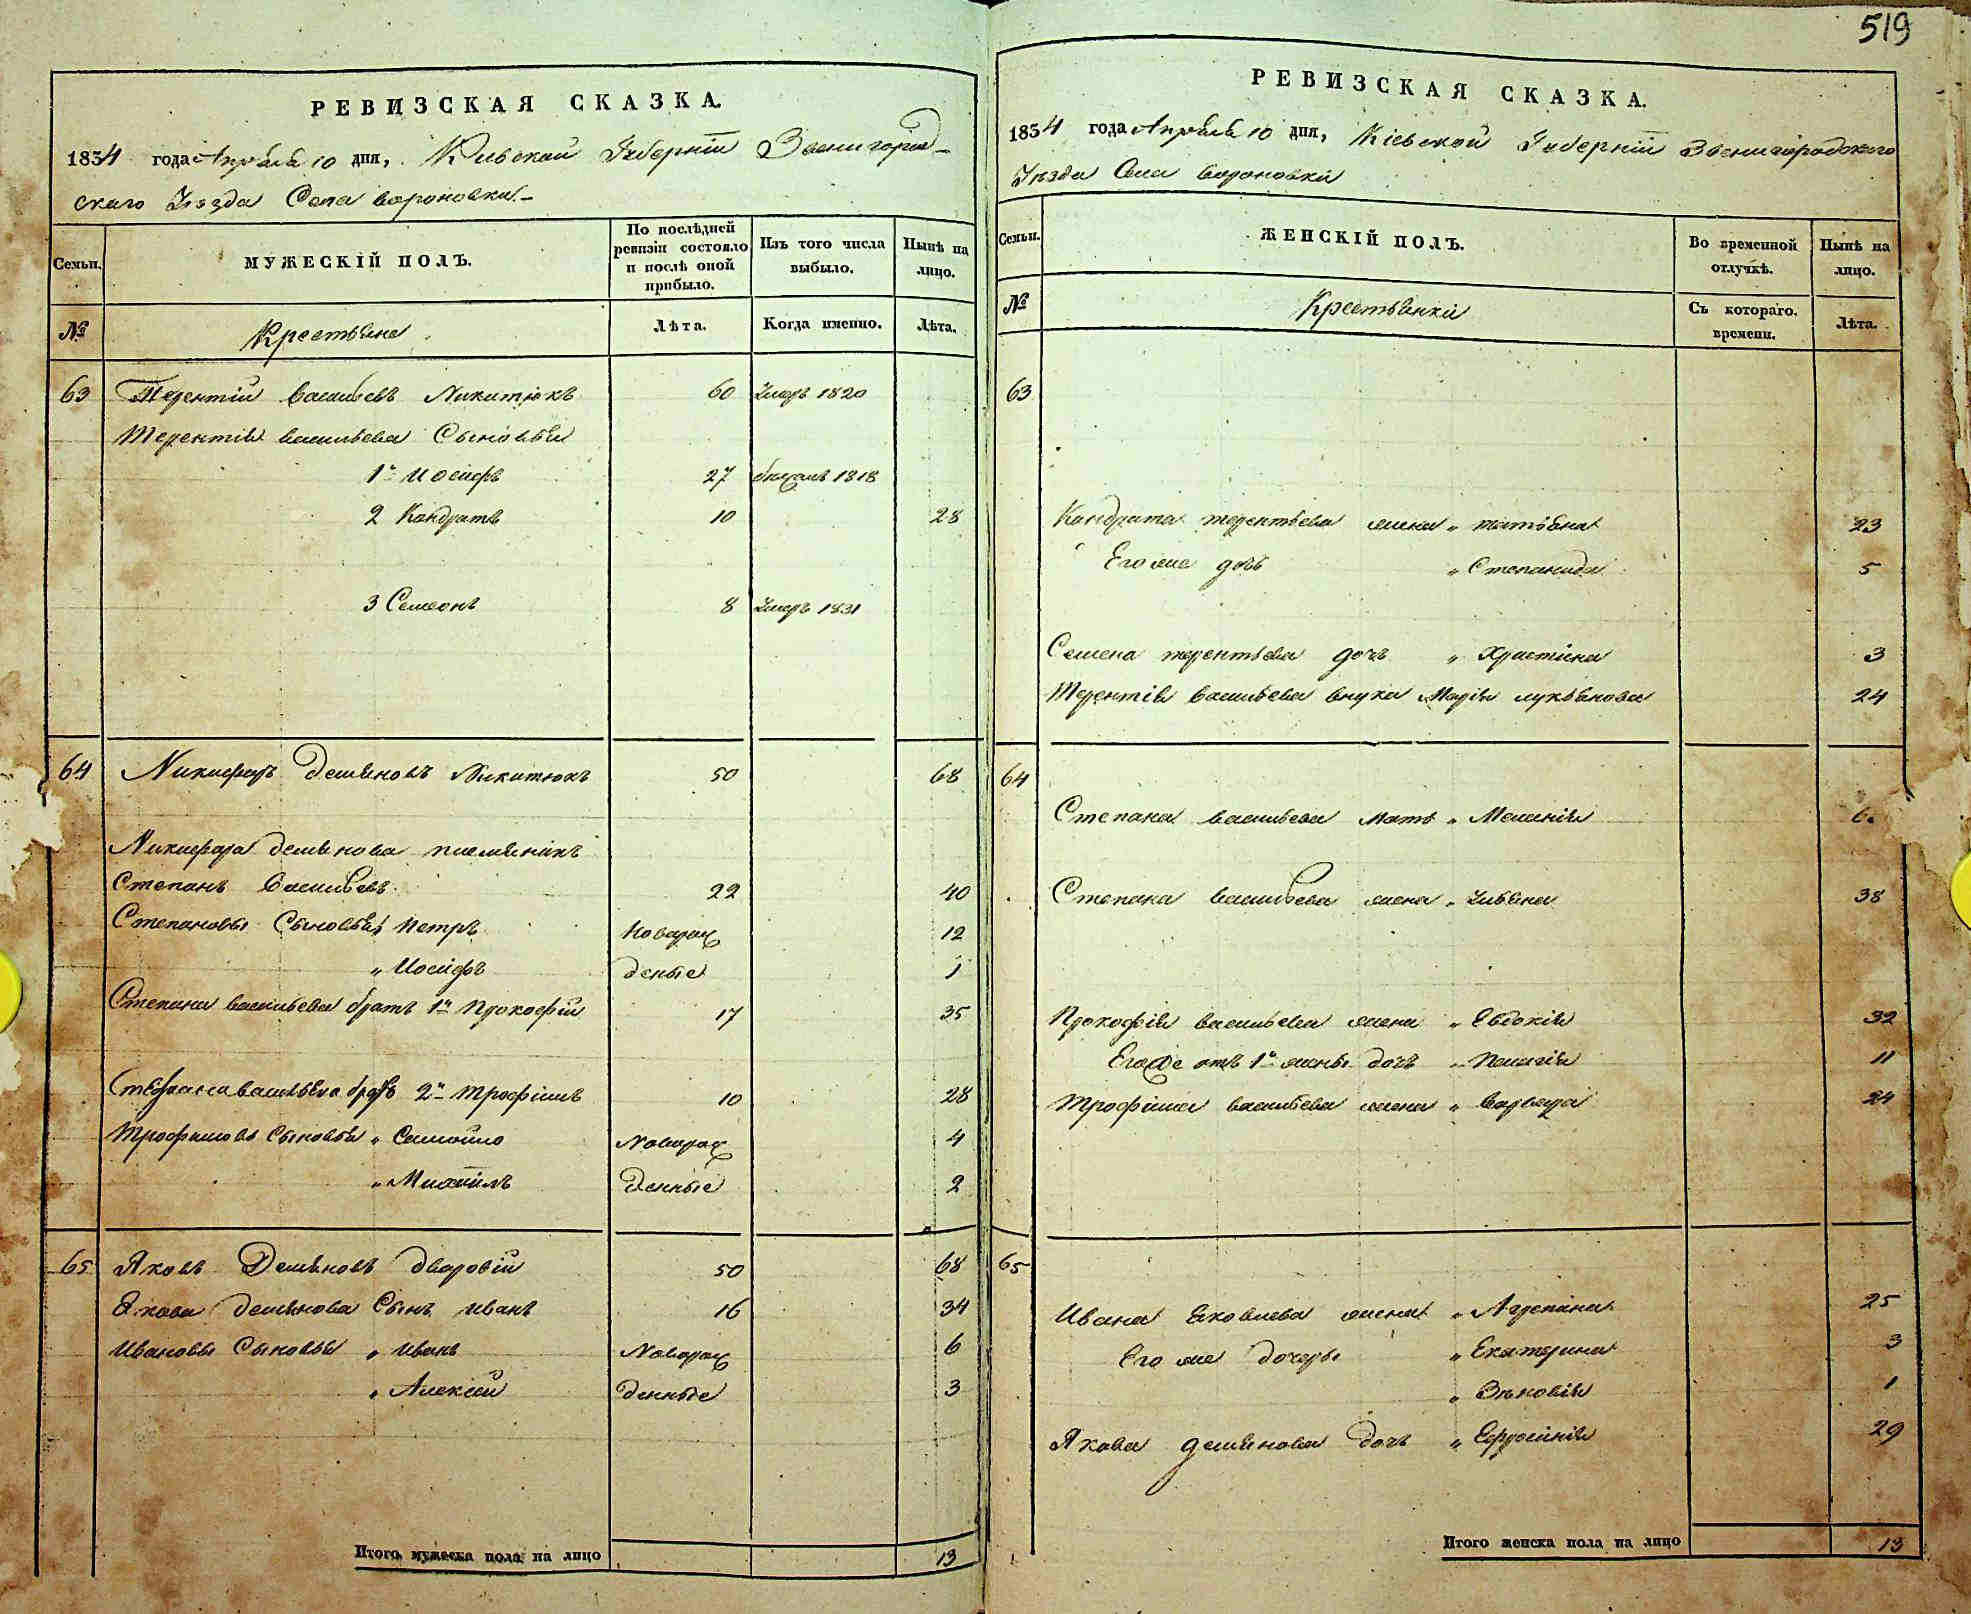 519
РЕВИЗСКАЯ СКАЗКА.
1834 года Апреля 10 дня, Киевской Губернiи Звенигород-
скаго Уезда Села вороновки.-
Семьи.
МУЖЕСКIЙ ПОЛЪ.
По послѣдней ревизiи состояло и послѣ оной прибыло.
Изъ того числа выбыло.
Нынѣ на лицо.
№
Крестьяне
Лѣта.
Когда именно.
Лѣта.
63 Терентiй васильевъ Никитюкъ 60 Умеръ 1820
Терентiя васильева Сыновья
1й Иосифъ 27 1818
2 Кондратъ 10 28
3 Семеонъ 8 Умеръ 1831
64 Никифоръ Демяновъ Никитюкъ 50 68
Никифора демянова племянiкъ
Степанъ Васильевъ 22 40
Степановы Сыновья Петръ Новорож 12
" Иосифъ деные 1
Степана васильева братъ 1й Прокофiй 17 35
Стефана васильева братъ 2й Трофiмъ 10 28
Трофимовы Сыновья " Самойло Новорож 4
" Михаилъ денные 2
65 Яковъ Демяновъ дворовiй 50 68
Якова демянова Сынъ иванъ 16 34
Ивановы Сыновья " иванъ Новорож 6
" Алексей денные 3
Итого мужеска пола на лицо 13
РЕВИЗСКАЯ СКАЗКА.
1834 года Апреля 10 дня, Кiевской Губернiи Звенигородскаго
Уезда Села вороновки
Семьи.
ЖЕНСКIЙ ПОЛЪ.
Во временной отлучкѣ.
Нынѣ на лицо.
№
Крестьянки
Съ котораго. времени.
Лѣта.
63
Кондрата терентьева жена " татiяна 23
Его же дочь " Степанида 5
Семена терентьева дочь " Христiна 3
Терентiя васильева внука Марiя лукьянова 24
64
Степана васильева мать " Меланiя
Степана васильева жена " Ульяна 38
Прокофiя васильева жена " Евдокiя 32
Егоже отъ 1й жены дочь " Пелагiя 11
Трофiма васильева жена " Варвара 24
65
Ивана Яковлева жена " Агрепiна 25
Его же дочеры " Екатерина 3
" Зѣновiя 1
Якова демянова дочь " Ефросiнiя 29
Итого женска пола на лицо 13